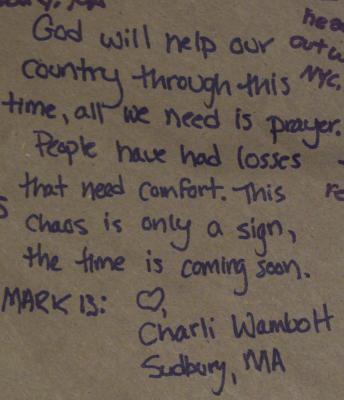 God will help our
country through this
time, all we need is prayer.
People have had losses
that need comfort. This
chaos is only a sign,
the time is coming soon.
MARK 13: ♡,
Charli Wambolt
Sudbury, MA
NYC.